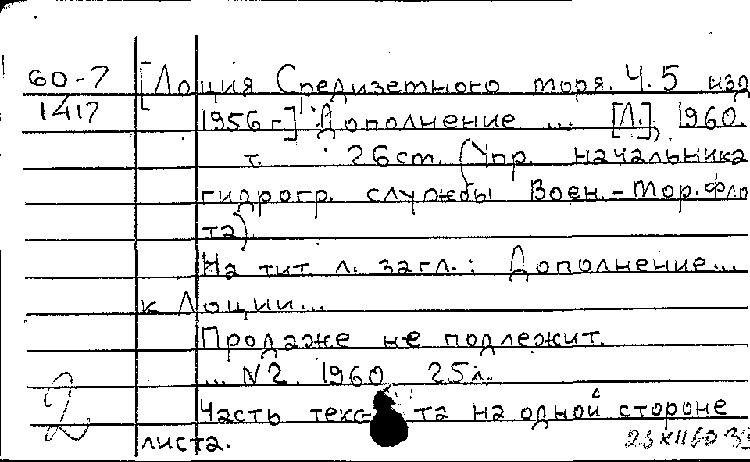 60-7
1417
[Лоция Средизетного торя. Ч. 5 изд
1956 г.] Дополнение ... [Л.], 1960.
т. 26 cm. (Упр. начальника
гидрогр. службы Воен.-Мор. фло
та).
На тит. л. загл.: Дополнение...
к Лоции...
Продаже не подлежит.
... N2. 1960 25 л.
Часть текс та на одной стороне
листа.
2